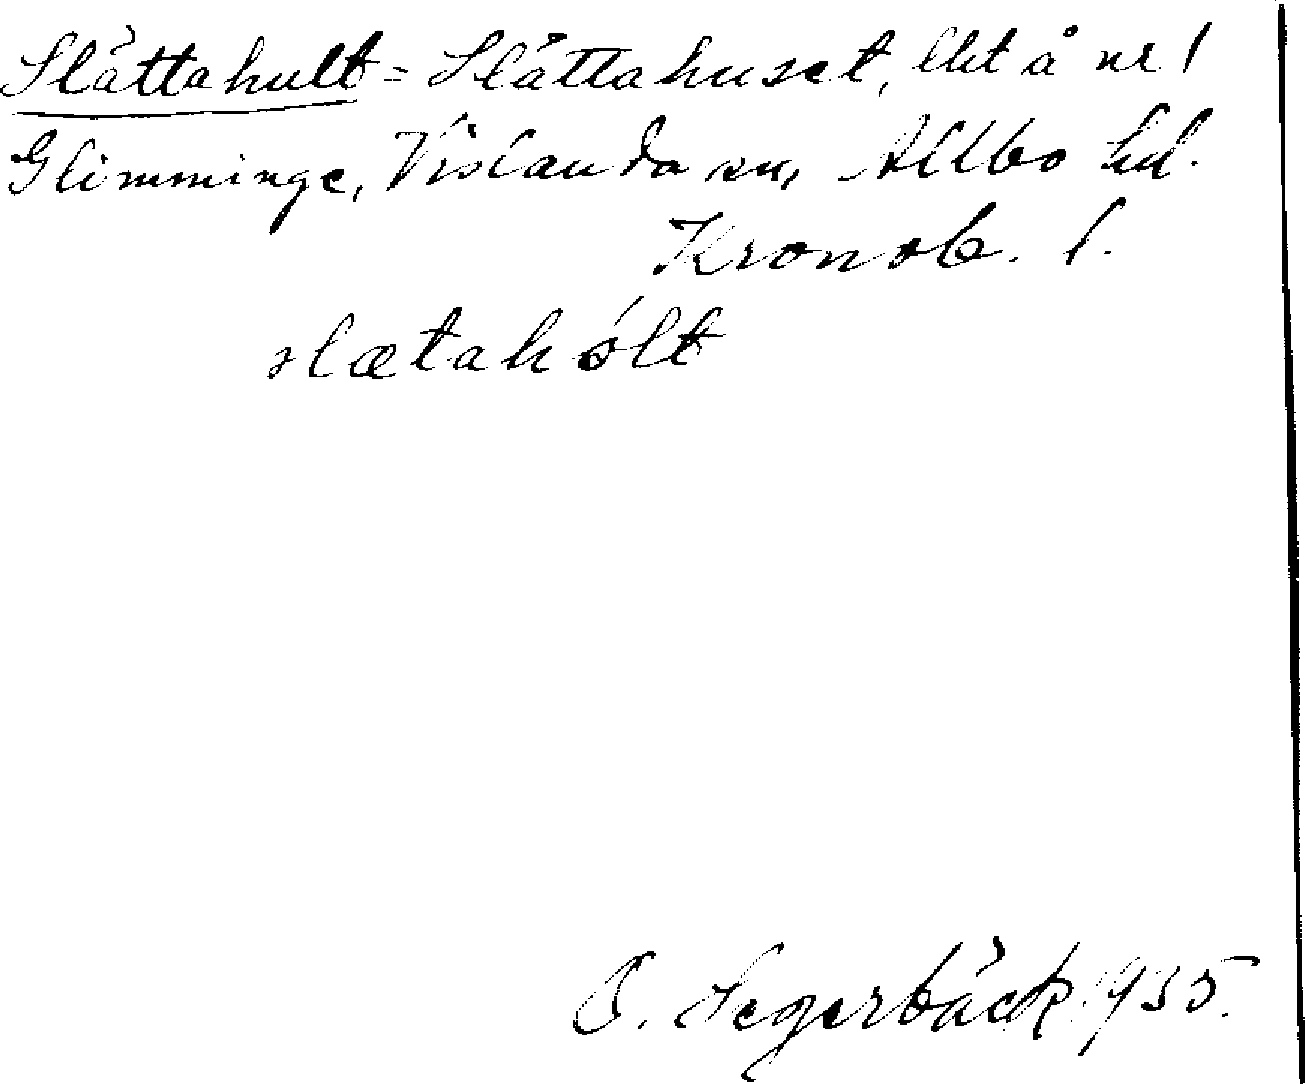 Slättahult = Slättahuset, lht å nr 1
Glimminge, Vislanda sn, Allbo hd.
Kronob. l.
slætahólt
O. Segerbäck 1935.